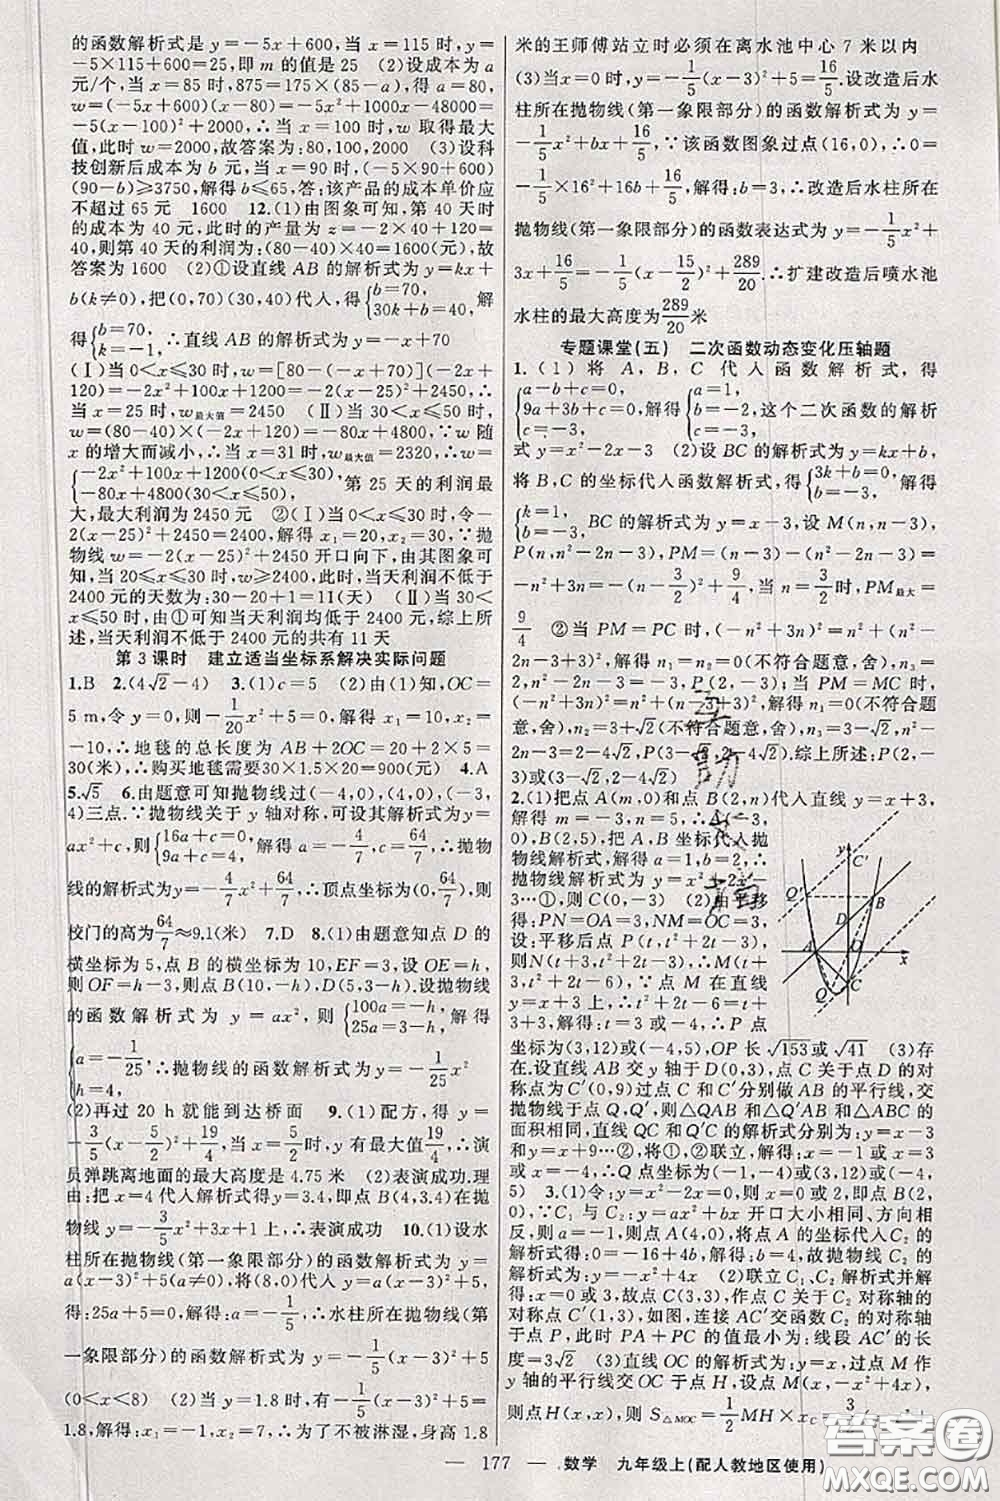 的函数解析式是 y=-5x+600,当 x=115 时,y=
-5×115+600=25,即 m 的值是 25 (2)设成本为 a
元/个,当 x=85 时,875=175×(85-a),得 a=80,
w=(-5x+600)(x-80)=-5x²+1000x-48000=
-5(x-100)²+2000,∴当 x=100 时,w 取得最大
值,此时 w=2000,故答案为:80,100,2000 (3)设科
技创新后成本为 b 元,当 x=90 时,(-5×90+600)
(90-b)≥3750,解得 b≤65,答:该产品的成本单价应
不超过 65 元 1600 12.(1)由图象可知,第 40 天时
的成本为 40 元,此时的产量为 z=-2×40+120=
40,则第 40 天的利润为:(80-40)×40=1600(元),故
答案为 1600 (2)①设直线 AB 的解析式为 y=kx+
b(k≠0),把(0,70)(30,40)代入,得{b=70, 30k+b=40, 解
得{b=70, k=-1, ∴直线 AB 的解析式为 y=-x+70
(Ⅰ)当 0<x≤30 时,w=[80-(-x+70)](-2x+
120)=-2x²+100x+1200=-2(x-25)²+2450,∴
当 x=25 时,w最大值=2450 (Ⅱ)当 30<x≤50 时,
w=(80-40)×(-2x+120)=-80x+4800,∵w 随
x 的增大而减小,∴当 x=31 时,w最大值=2320,∴w=
{-2x²+100x+1200(0<x≤30), -80x+4800(30<x≤50), 第 25 天的利润最
大,最大利润为 2450 元 ②(Ⅰ)当 0<x≤30 时,令-
2(x-25)²+2450=2400,解得 x₁=20,x₂=30,∵抛
物线 w=-2(x-25)²+2450 开口向下,由其图象可
知,当 20≤x≤30 时,w≥2400,此时,当天利润不低于
2400 元的天数为:30-20+1=11(天) (Ⅱ)当 30<
x≤50 时,由①可知当天利润均低于 2400 元,综上所
述,当天利润不低于 2400 元的共有 11 天
第 3 课时 建立适当坐标系解决实际问题
1.B 2.(4√2-4) 3.(1)c=5 (2)由(1)知,OC=
5 m,令 y=0,则-1/20x²+5=0,解得 x₁=10,x₂=
-10,∴地毯的总长度为 AB+2OC=20+2×5=
30,∴购买地毯需要 30×1.5×20=900(元) 4.A
5.√5 6.由题意可知抛物线过(-4,0),(4,0),(-3,
4)三点.∵抛物线关于 y 轴对称,可设其解析式为 y=
ax²+c,则{16a+c=0, 9a+c=4, 解得{a=-4/7, c=64/7, ∴抛物
线的解析式为 y=-4/7x²+64/7,∴顶点坐标为(0,64/7),则
校门的高为64/7≈9.1(米) 7.D 8.(1)由题意知点 D 的
横坐标为 5,点 B 的横坐标为 10,EF=3,设 OE=h,
则 OF=h-3,则点 B(10,-h),D(5,3-h).设抛物线
的函数解析式为 y=ax²,则{100a=-h, 25a=3-h, 解得
{a=-1/25, h=4, ∴抛物线的函数解析式为 y=-1/25x²
(2)再过 20 h 就能到达桥面 9.(1)配方,得 y=
-3/5(x-5/2)²+19/4,当 x=5/2时,y 有最大值19/4,∴演
员弹跳离地面的最大高度是 4.75 米 (2)表演成功.理
由:把 x=4 代入解析式得 y=3.4,即点 B(4,3.4)在抛
物线 y=-3/5x²+3x+1 上,∴表演成功 10.(1)设水
柱所在抛物线(第一象限部分)的函数解析式为 y=
a(x-3)²+5(a≠0),将(8,0)代入 y=a(x-3)²+5,
得:25a+5=0,解得:a=-1/5,∴水柱所在抛物线(第
一象限部分)的函数解析式为 y=-1/5(x-3)²+5
(0<x<8) (2)当 y=1.8 时,有-1/5(x-3)²+5=
1.8,解得:x₁=-1,x₂=7,∴为了不被淋湿,身高 1.8
米的王师傅站立时必须在离水池中心 7 米以内
(3)当 x=0 时,y=-1/5(x-3)²+5=16/5.设改造后水
柱所在抛物线(第一象限部分)的函数解析式为 y=
-1/5x²+bx+16/5,∵该函数图象过点(16,0),∴0=
-1/5×16²+16b+16/5,解得:b=3,∴改造后水柱所在
抛物线(第一象限部分)的函数表达式为 y=-1/5x²+
3x+16/5=-1/5(x-15/2)²+289/20.∴扩建改造后喷水池
水柱的最大高度为289/20米
专题课堂(五) 二次函数动态变化压轴题
1.(1)将 A,B,C 代入函数解析式,得
{a-b+c=0, 9a+3b+c=0, c=-3, 解得{a=1, b=-2, c=-3, 这个二次函数的解析
式 y=x²-2x-3 (2)设 BC 的解析式为 y=kx+b,
将 B,C 的坐标代入函数解析式,得{3k+b=0, b=-3, 解得
{k=1, b=-3, BC 的解析式为 y=x-3,设 M(n,n-3),
P(n,n²-2n-3),PM=(n-3)-(n²-2n-3)=
-n²+3n=-(n-3/2)²+9/4,当 n=3/2时,PM最大=
9/4 ②当 PM=PC 时,(-n²+3n)²=n²+(n²-
2n-3+3)²,解得 n₁=n₂=0(不符合题意,舍),n₃=
2,n²-2n-3=-3,P(2,-3);当 PM=MC 时,
(-n²+3n)²=n²+(n-3+3)²,解得 n₁=0(不符合题
意,舍),n₂=3+√2(不符合题意,舍),n₃=3-√2,n²-
2n-3=2-4√2,P(3-√2,2-4√2).综上所述:P(2,-
3)或(3-√2,2-4√2)
2.(1)把点 A(m,0)和点 B(2,n)代入直线 y=x+3,
解得 m=-3,n=5,∴A(-3,
0),B(2,5),把 A、B 坐标代入抛
物线解析式,解得 a=1,b=2,∴
抛物线解析式为 y=x²+2x-
3…①,则 C(0,-3) (2)由平移
得:PN=OA=3,NM=OC=3,
设:平移后点 P(t,t²+2t-3),
则 N(t+3,t²+2t-3),∴M(t+
3,t²+2t-6),∵点 M 在直线
y=x+3 上,∴t²+2t-6=t+
3+3,解得:t=3 或-4,∴P 点
坐标为(3,12)或(-4,5),OP 长√153或√41 (3)存
在.设直线 AB 交 y 轴于 D(0,3),点 C 关于点 D 的对
称点为 C′(0,9)过点 C 和 C′分别做 AB 的平行线,交
抛物线于点 Q,Q′,则△QAB 和△Q′AB 和△ABC 的
面积相同,直线 QC 和 Q′C 的解析式分别为:y=x-3
和 y=x+9…②,将①,②联立,解得:x=-1 或 x=3 或
x=-4,∴Q 点坐标为(-1,-4)或(3,12)或(-4,
5) 3.(1)令:y=x²-2x=0,则 x=0 或 2,即点 B(2,
0),∵C₁ 与 C₂:y=ax²+bx 开口大小相同、方向相
反,则 a=-1,则点 A(4,0),将点 A 的坐标代入 C₂ 的
解析式得:0=-16+4b,解得:b=4,故抛物线 C₂ 的解
析式为:y=-x²+4x (2)联立 C₁、C₂ 解析式并解
得:x=0 或 3,故点 C(3,3),作点 C 关于 C₂ 对称轴的
对称点 C′(1,3),如图,连接 AC′交函数 C₂ 的对称轴
于点 P,此时 PA+PC 的值最小为:线段 AC′的长
度=3√2 (3)直线 OC 的解析式为:y=x,过点 M 作
y 轴的平行线交 OC 于点 H,设点 M(x,-x²+4x),
则点 H(x,x),则 S△MOC=1/2MH×xC=3/2(-x²+
y C′ Q′ B D A O x Q C
177 数学 九年级上(配人教地区使用)
答案圈
MXQE.COM